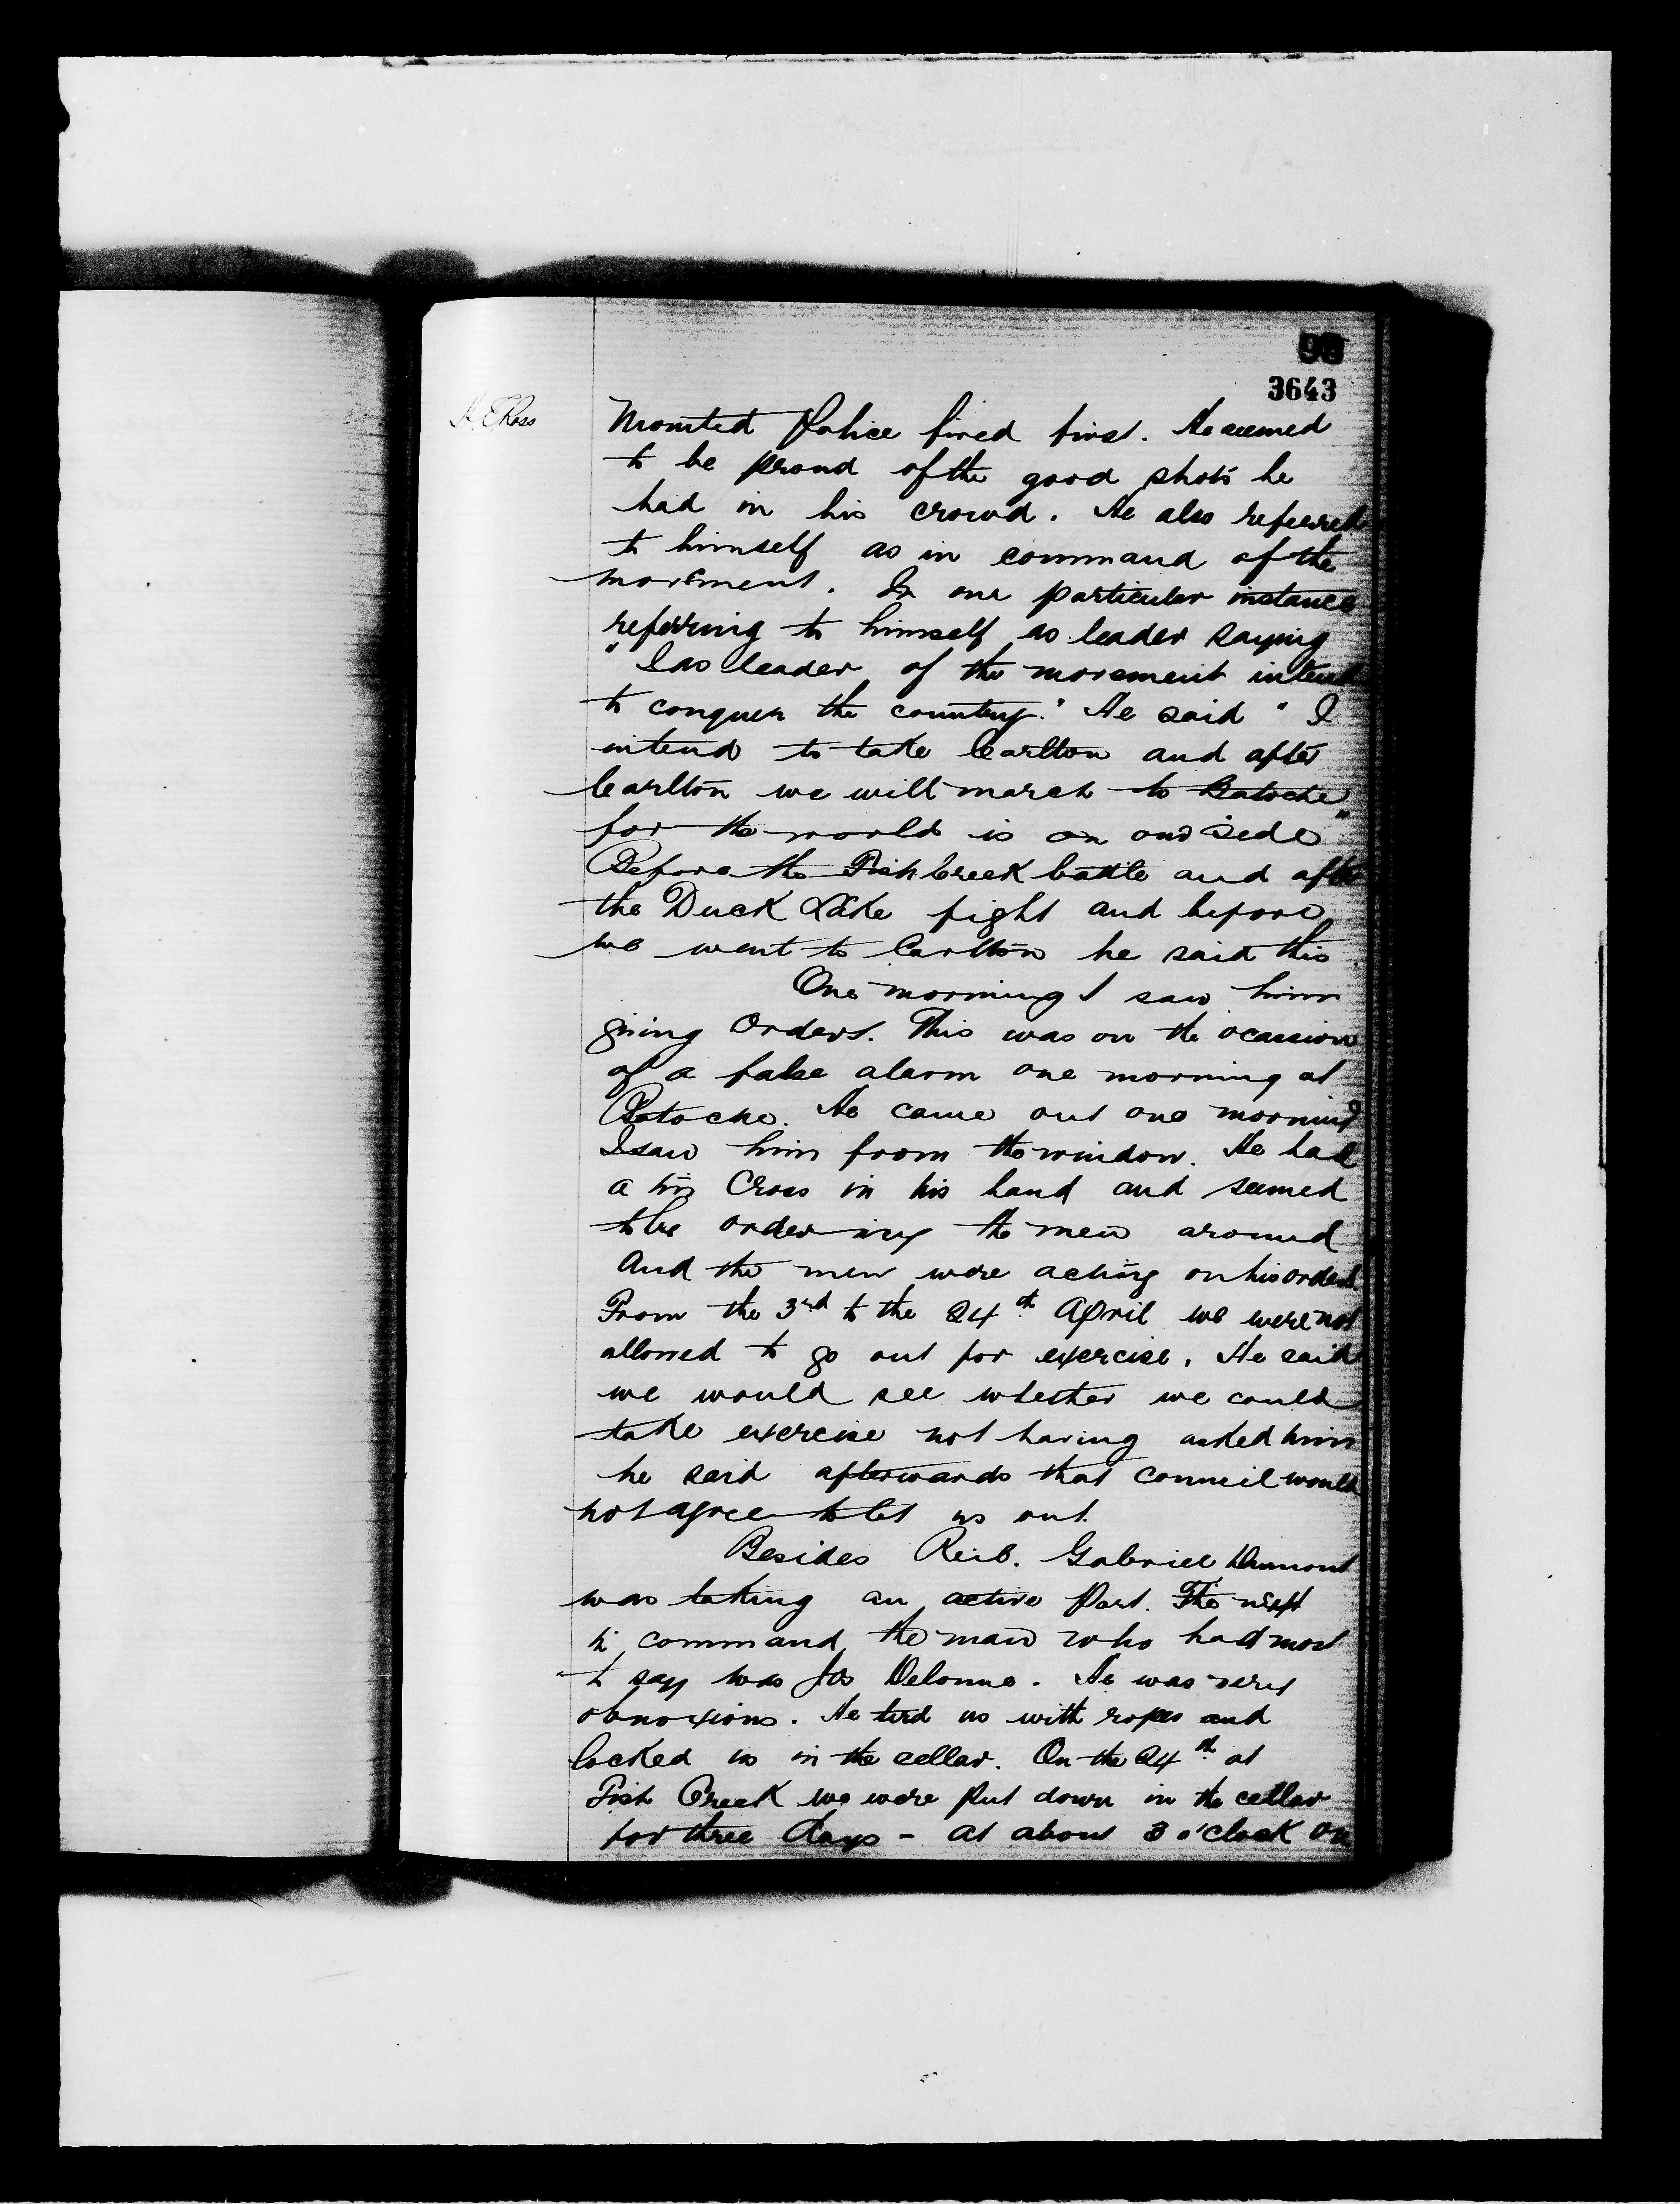 3643
H. E. Ross
Mounted Police fired first. He seemed
to be proud of the good shots he
had in his crowd. He also referred
to himself as in command of the
movement. In one particular instance
referring to himself as leader saying
"I as leader of the movement intend
to conquer the country." He said "I
intend to take Carlton and after
Carlton we will march to Batoche
for the world is on our side"
Before the Fish Creek battle and after
the Duck Lake fight and before
we went to Carlton he said this.
One morning I saw him
giving Orders. This was on the ocassion
of a false alarm one morning at
Batoche. He came out one morning
I saw him from the window. He had
a Cross in his hand and seemed
to be ordering the men around
And the men were acting on his orders
From the 3rd to the 24th April we were not
allowed to go out for exercise. He said
we would see whether we could
take exercise not having asked him
he said afterwards that Council would
not agree to let us out.
Besides Reil. Gabriel Dumont
was taking an active part. The next
in command, the man who had most
to say was Delorme. He was very
obnoxious. He tied us with ropes and
locked us in the cellar. On the 24th at
Fish Creek we were put down in the cellar
for three days - at about 3 o'clock on